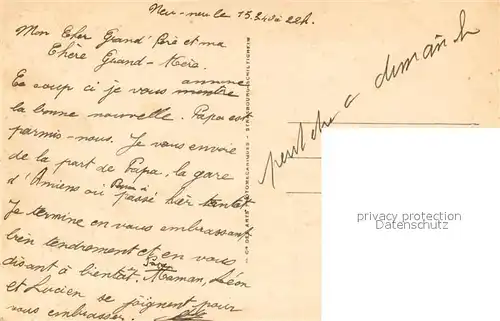 Neu-neu le 15.2.40 à 22h.
Mon Cher Grand' Père et ma
Chère Grand-Mère.
annonce
Ce coup ci je vous montre
la bonne nouvelle. Papa est
parmis-nous. Je vous envoie
de la part de Papa, la gare
d'Amiens où Papa a passé hier tantôt
Je termine en vous embrassant
bien tendrement et en vous
disant à bientôt. Papa Maman, Léon
et Lucien se joignent pour
vous embrasser.
peut être a dimanche
Cie DES ARTS PHOTOMECANIQUES - STRASBOURG-SCHILTIGHEIM
privacy protection
Datenschutz